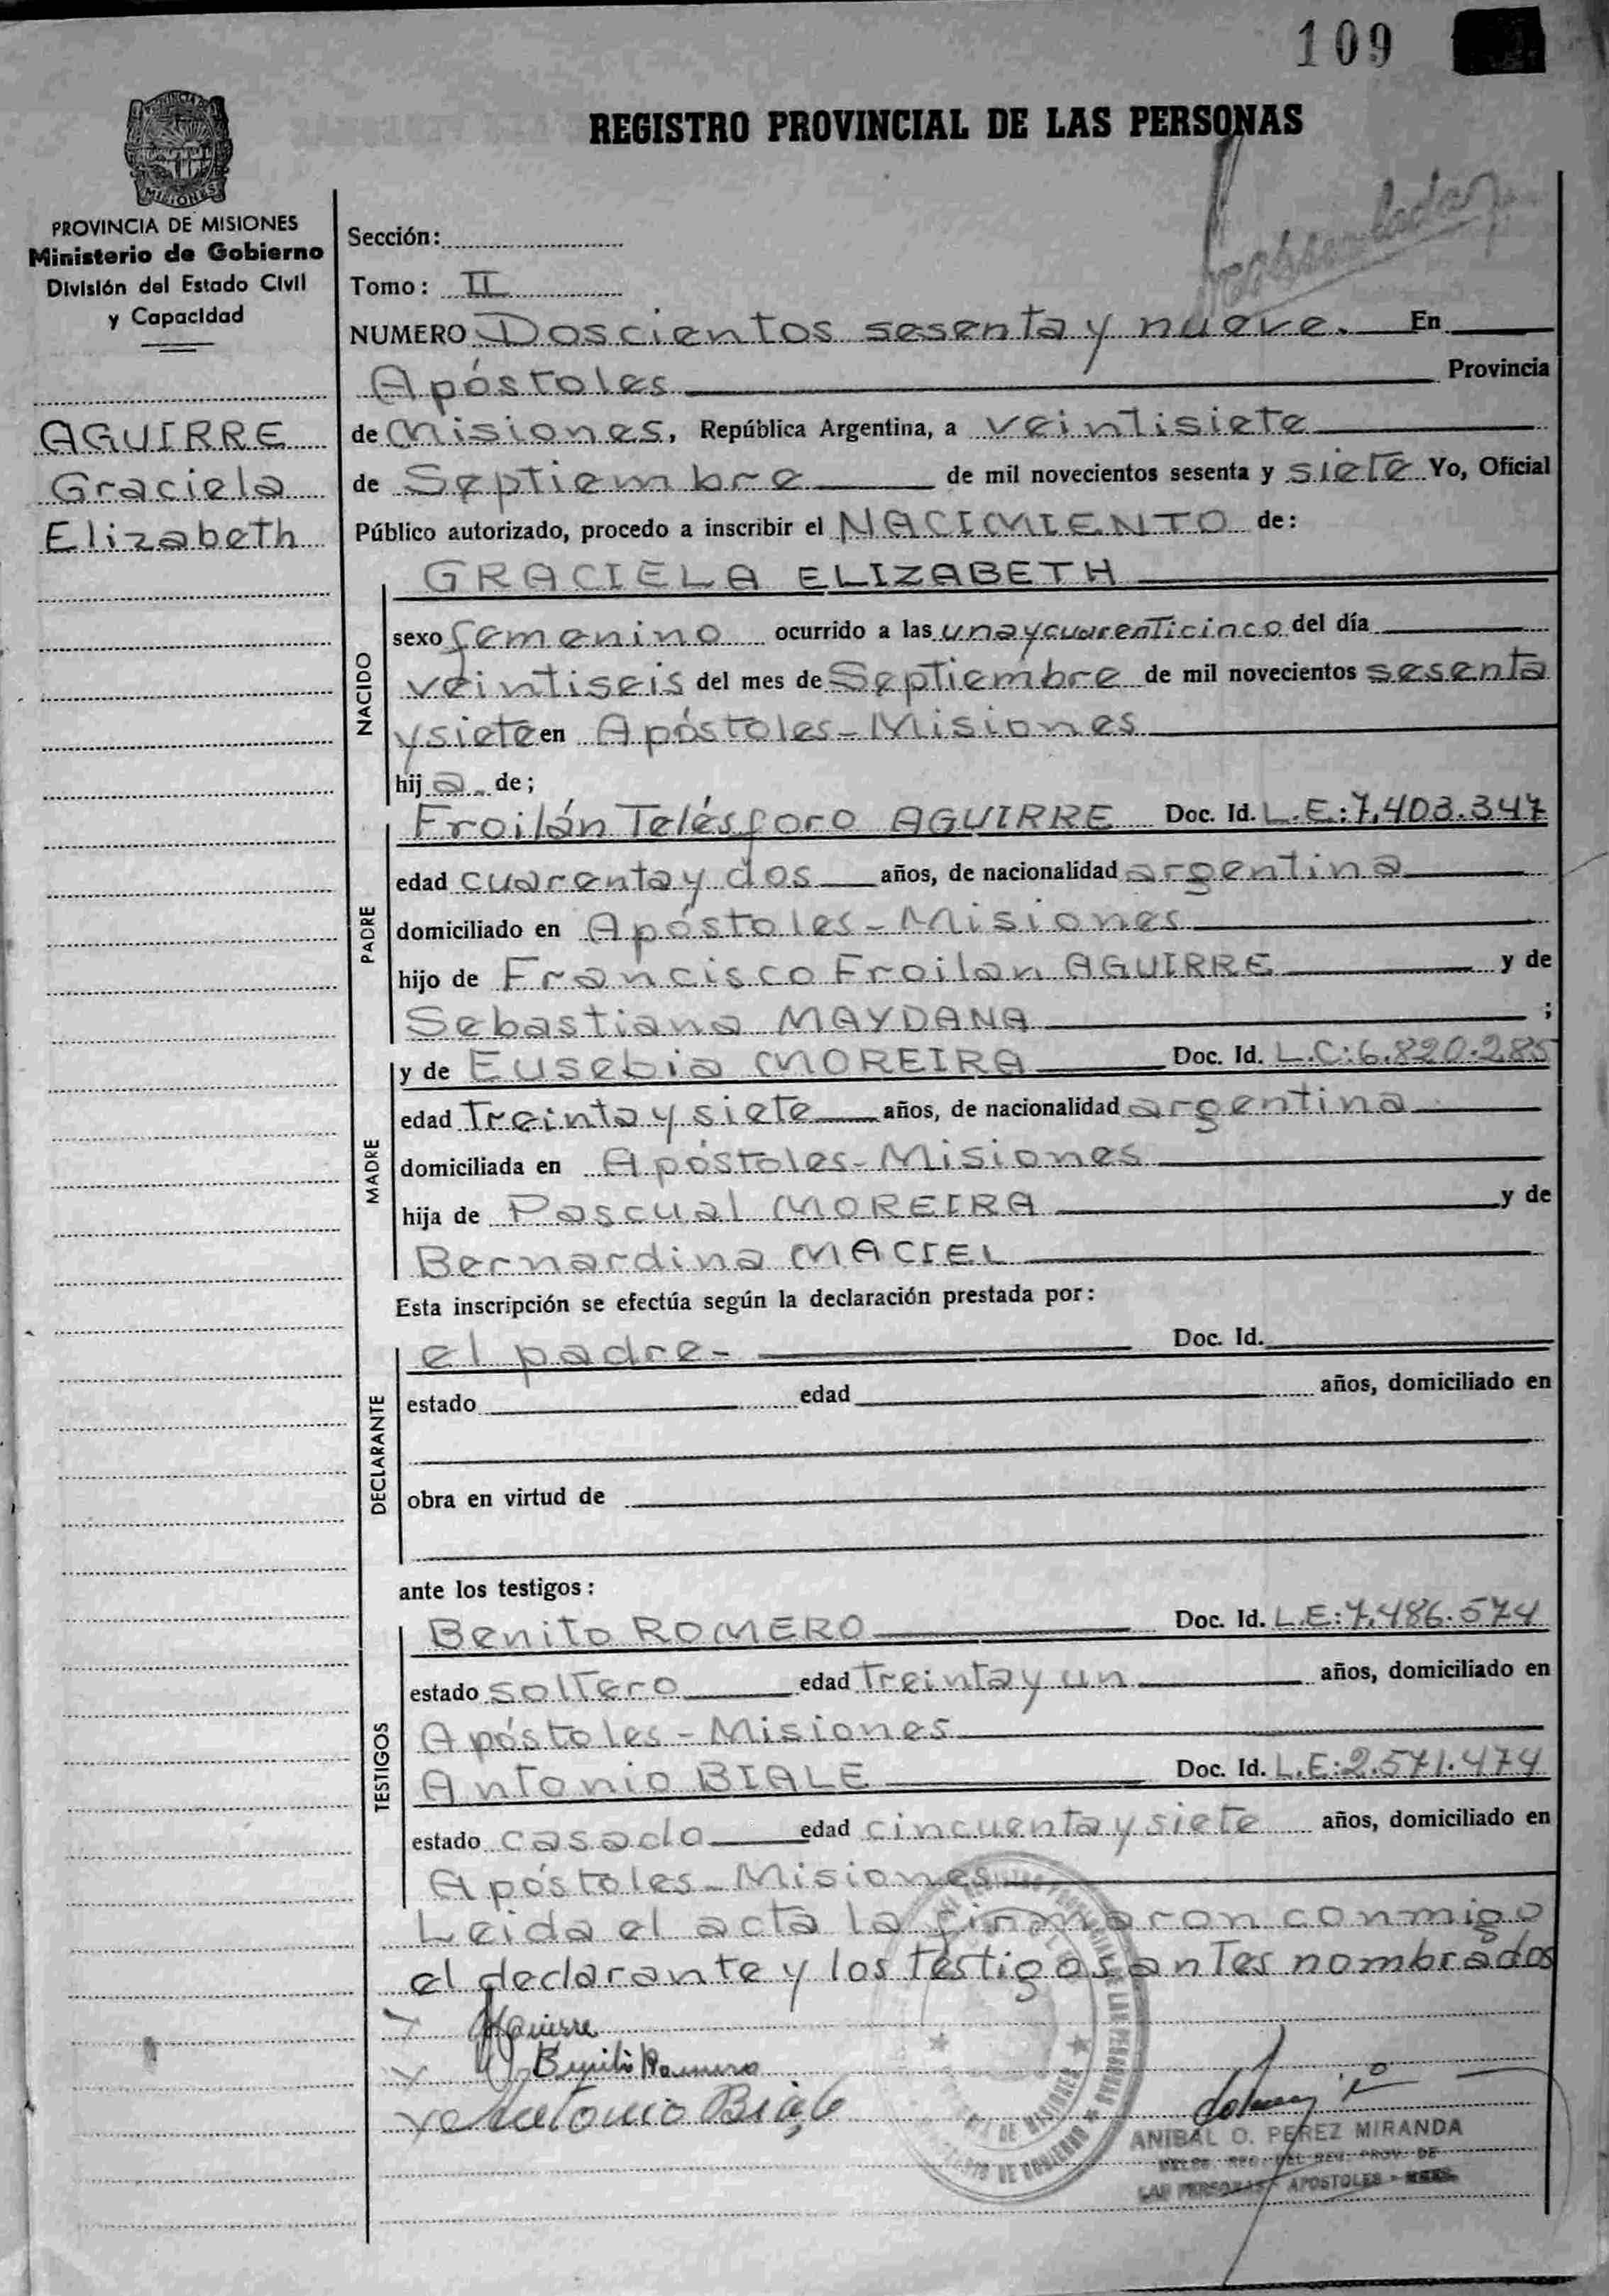 109
REGISTRO PROVINCIAL DE LAS PERSONAS
MISIONES
PROVINCIA DE MISIONES
Ministerio de Gobierno
División del Estado Civil
y Capacidad
AGUIRRE
Graciela
Elizabeth
Sección:
Tomo: II
NUMERO Doscientos sesenta y nueve. En
Apóstoles Provincia
de Misiones, República Argentina, a veintisiete
de Septiembre de mil novecientos sesenta y siete Yo, Oficial
Público autorizado, procedo a inscribir el NACIMIENTO de:
GRACIELA ELIZABETH
NACIDO
sexo femenino ocurrido a las una y cuarenticinco del día
veintiseis del mes de Septiembre de mil novecientos sesenta
y siete en Apóstoles - Misiones
hij a. de;
PADRE
Froilán Telésforo AGUIRRE Doc. Id. L.E:7.403.347
edad cuarenta y dos años, de nacionalidad argentina
domiciliado en Apóstoles - Misiones
hijo de Francisco Froilan AGUIRRE y de
Sebastiana MAYDANA ;
MADRE
y de Eusebia MOREIRA Doc. Id. L.C:6.820.285
edad Treinta y siete años, de nacionalidad argentina
domiciliada en Apóstoles - Misiones
hija de Pascual MOREIRA y de
Bernardina MACIEL
Esta inscripción se efectúa según la declaración prestada por:
DECLARANTE
el padre- Doc. Id.
estado edad años, domiciliado en
obra en virtud de
ante los testigos:
TESTIGOS
Benito ROMERO Doc. Id. L.E:7.486.574
estado soltero edad Treinta y un años, domiciliado en
Apóstoles - Misiones
Antonio BIALE Doc. Id. L.E:2.571.474
estado casado edad cincuenta y siete años, domiciliado en
Apóstoles - Misiones
Leida el acta la firmaron conmigo
el declarante y los testigos antes nombrados
Aguirre
Benito Romero
Antonio Biale
ANIBAL O. PEREZ MIRANDA
LAS PERSONAS - APOSTOLES